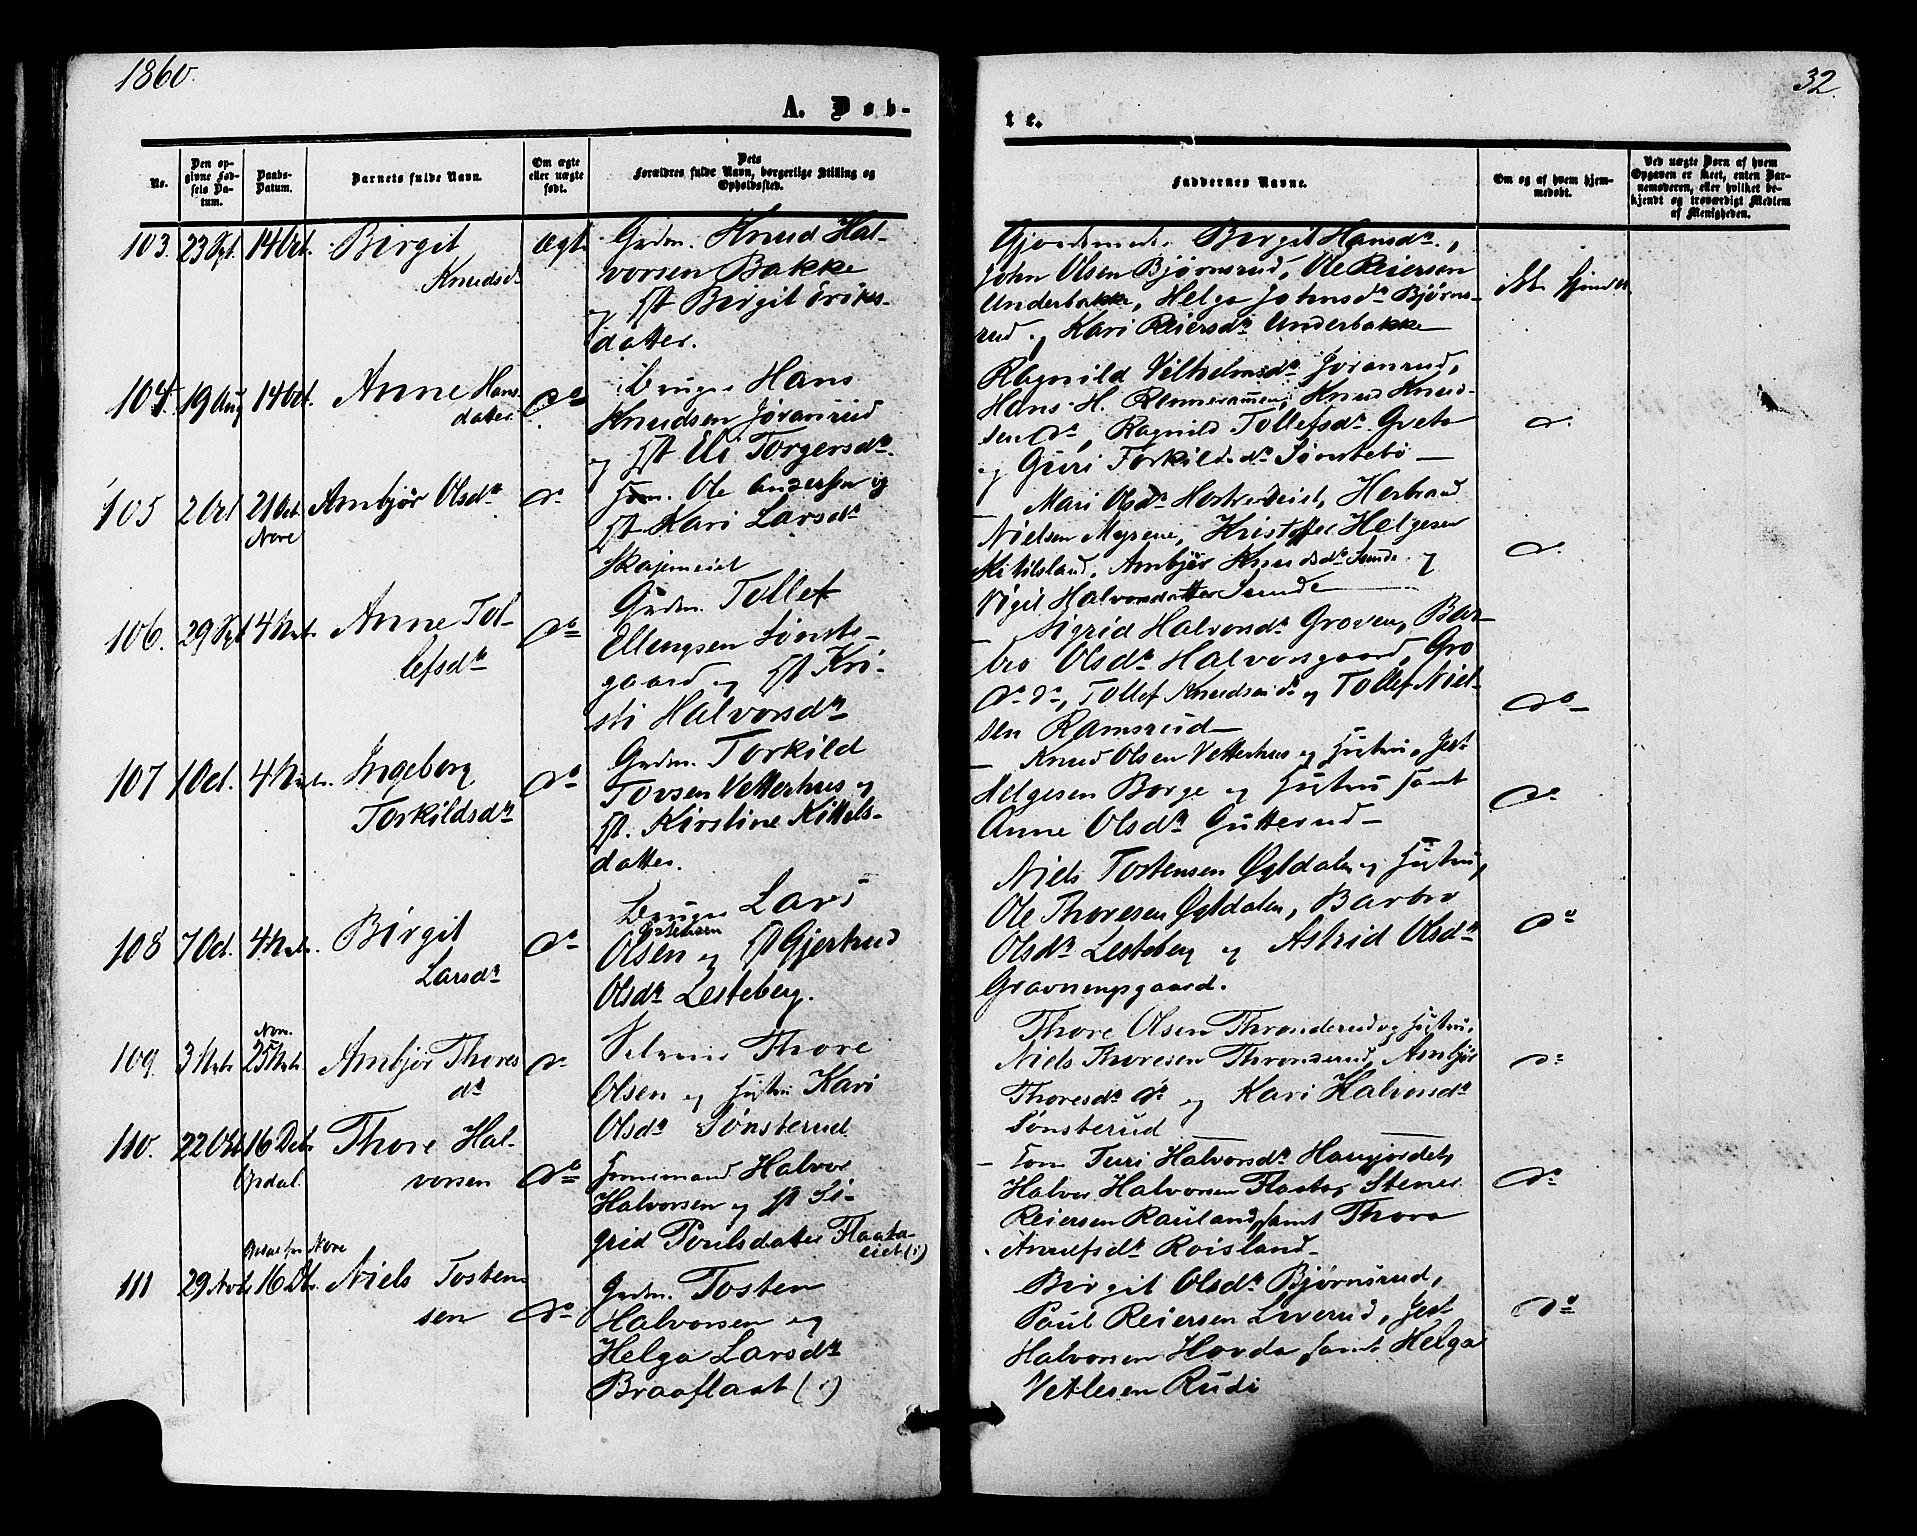 1860.
32.
A. Døb-
te.
No.
Den op-
givne Fød-
sels Da-
tum.
Daabs-
Datum.
Barnets fulde Navn.
Om ægte
eller uægte
født.
Dets
Forældres fulde Navn, borgerlige Stilling og
Opholdssted.
Faddernes Navne.
Om og af hvem hjem-
medøbt.
Ved uægte Børn af hvem
Opgaven er skeet, enten Bar-
nemoderen, eller hvilket be-
kjendt og troværdigt Medlem
af Menigheden.
103. 23 Spt. 14 Oct. Birgit
Knudsd.
ægt
Grdm. Knud Hal-
vorsen Bakke
og Hst Birgit Eriks-
datter.
Birgit Hansdr.,
John Olsen Bjørnsrud, Ole Reiersen
Underbakke, Helga Johnsdr Bjørns-
rud og Kari Reiersdr Underbakke
104. 19 Aug 14 Oct. Anne Hans
datter
do
Hans
Knudsen Jøranrud
og Hst Eli Torgersdr.
Ragnild Vilhelmsdr Jøranrud,
Hans H. Knud Knud-
sen do, Ragnild Tollefsdr
og Guri Torkildsdr Sønstebø
do
105 2 Oct 21 Oct. Nore
Ambjør Olsdr
do
Ole Andersen og
Hst Kari Larsdr
Skajemeiet
Mari Olsdr Herbrand
Nielsen Myrene, Kristoffer Helgesen
Kittilsland, Ambjør Knudsdr Sunde og
Vigil Halvorsdatter Sunde
do
106. 29 Spt 4 Nvb. Anne Tol-
lefsdr
do
Grdm. Tollef
Ellengsen Sønste-
gaard og Hst Kri-
sti Halvorsdr
Sigrid Halvorsdr Groven, Bar-
bro Olsdr Halvorsgaard, Gro
do do, Tollef Knudsen do og Tollef Niel-
sen Ramsrud
do
107 1 Oct. 4 Nvbr. Ingeborg
Torkildsdr
do
Grdm. Torkild
Tovsen Vetterhus og
Hst. Kirstine Kittels-
datter.
Knud Olsen Vetterhus og Hustru,
Helgesen Borge og Hustru samt
Anne Olsdr Gutterud
do
108 7 Oct. 4 Nvbr. Birgit
Larsdr
do
Lars
Olsen og Hst Gjertrud
Olsdr Lesteberg.
Niels Tostensen Øgtdalen og Hustru,
Ole Thoresen Øgtdalen, Barbro
Olsdr Lesteberg og Astrid Olsdr
Gravningsgaard.
do
109. 3 Nvb. Nore
25 Nvb. Ambjør Thores
dr
do
Thore
Olsen og Hustru Kari
Olsdr Sønsterud
Thore Olsen Thronderud og Hustru,
Niels Thoresen Thronderud, Ambjør
Thoresdr do og Kari Halvorsdr
Sønsterud
do
110. 22 Oct. 16 Dcb. Opdal. Thore Hal-
vorsen
do
Halvor
Halvorsen og Hst Si-
grid Poulsdatter Flaata-
eiet (:)
Turi Halvorsdr Haugjordet,
Halvor Halvorsen Flaata, Stener
Reiersen Rauland, samt Thora
Roisland
do
111 29 Nvb. 16 Db. Niels Tosten-
sen
do
Grdm. Tosten
Halvorsen og
Helga Larsdr
Braaflaat (:)
Birgit Olsdr Bjørnsrud,
Paul Reiersen Liverud,
Halvorsen Hovda samt Helga
Vetlesen Rudi
do